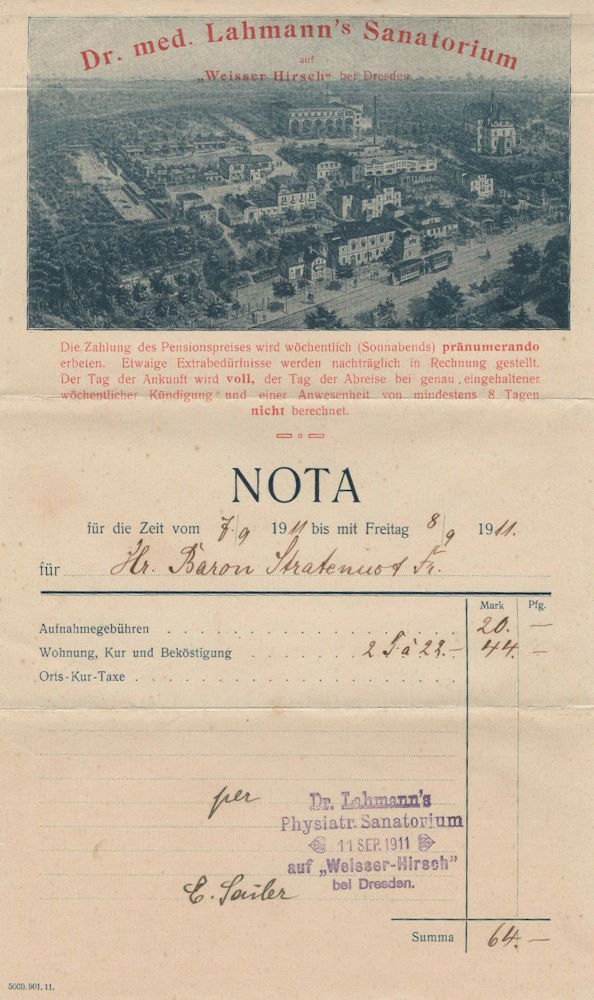 Dr. med. Lahmann's Sanatorium
auf
„Weisser Hirsch“ bei Dresden.
Die Zahlung des Pensionspreises wird wöchentlich (Sonnabends) pränumerando
erbeten. Etwaige Extrabedürfnisse werden nachträglich in Rechnung gestellt.
Der Tag der Ankunft wird voll, der Tag der Abreise bei genau eingehaltener
wöchentlicher Kündigung und einer Anwesenheit von mindestens 8 Tagen
nicht berechnet.
NOTA
für die Zeit vom 7/9 1911 bis mit Freitag 8/9 1911.
für Hr. Baron Fr.
Mark Pfg.
Aufnahmegebühren 20. —
Wohnung, Kur und Beköstigung 2 T. à 22.— 44. —
Orts-Kur-Taxe
per
Dr. Lahmann's
Physiatr. Sanatorium
11 SEP. 1911
auf „Weisser-Hirsch“
bei Dresden.
E. Sailer
Summa 64. —
5000. 901. 11.